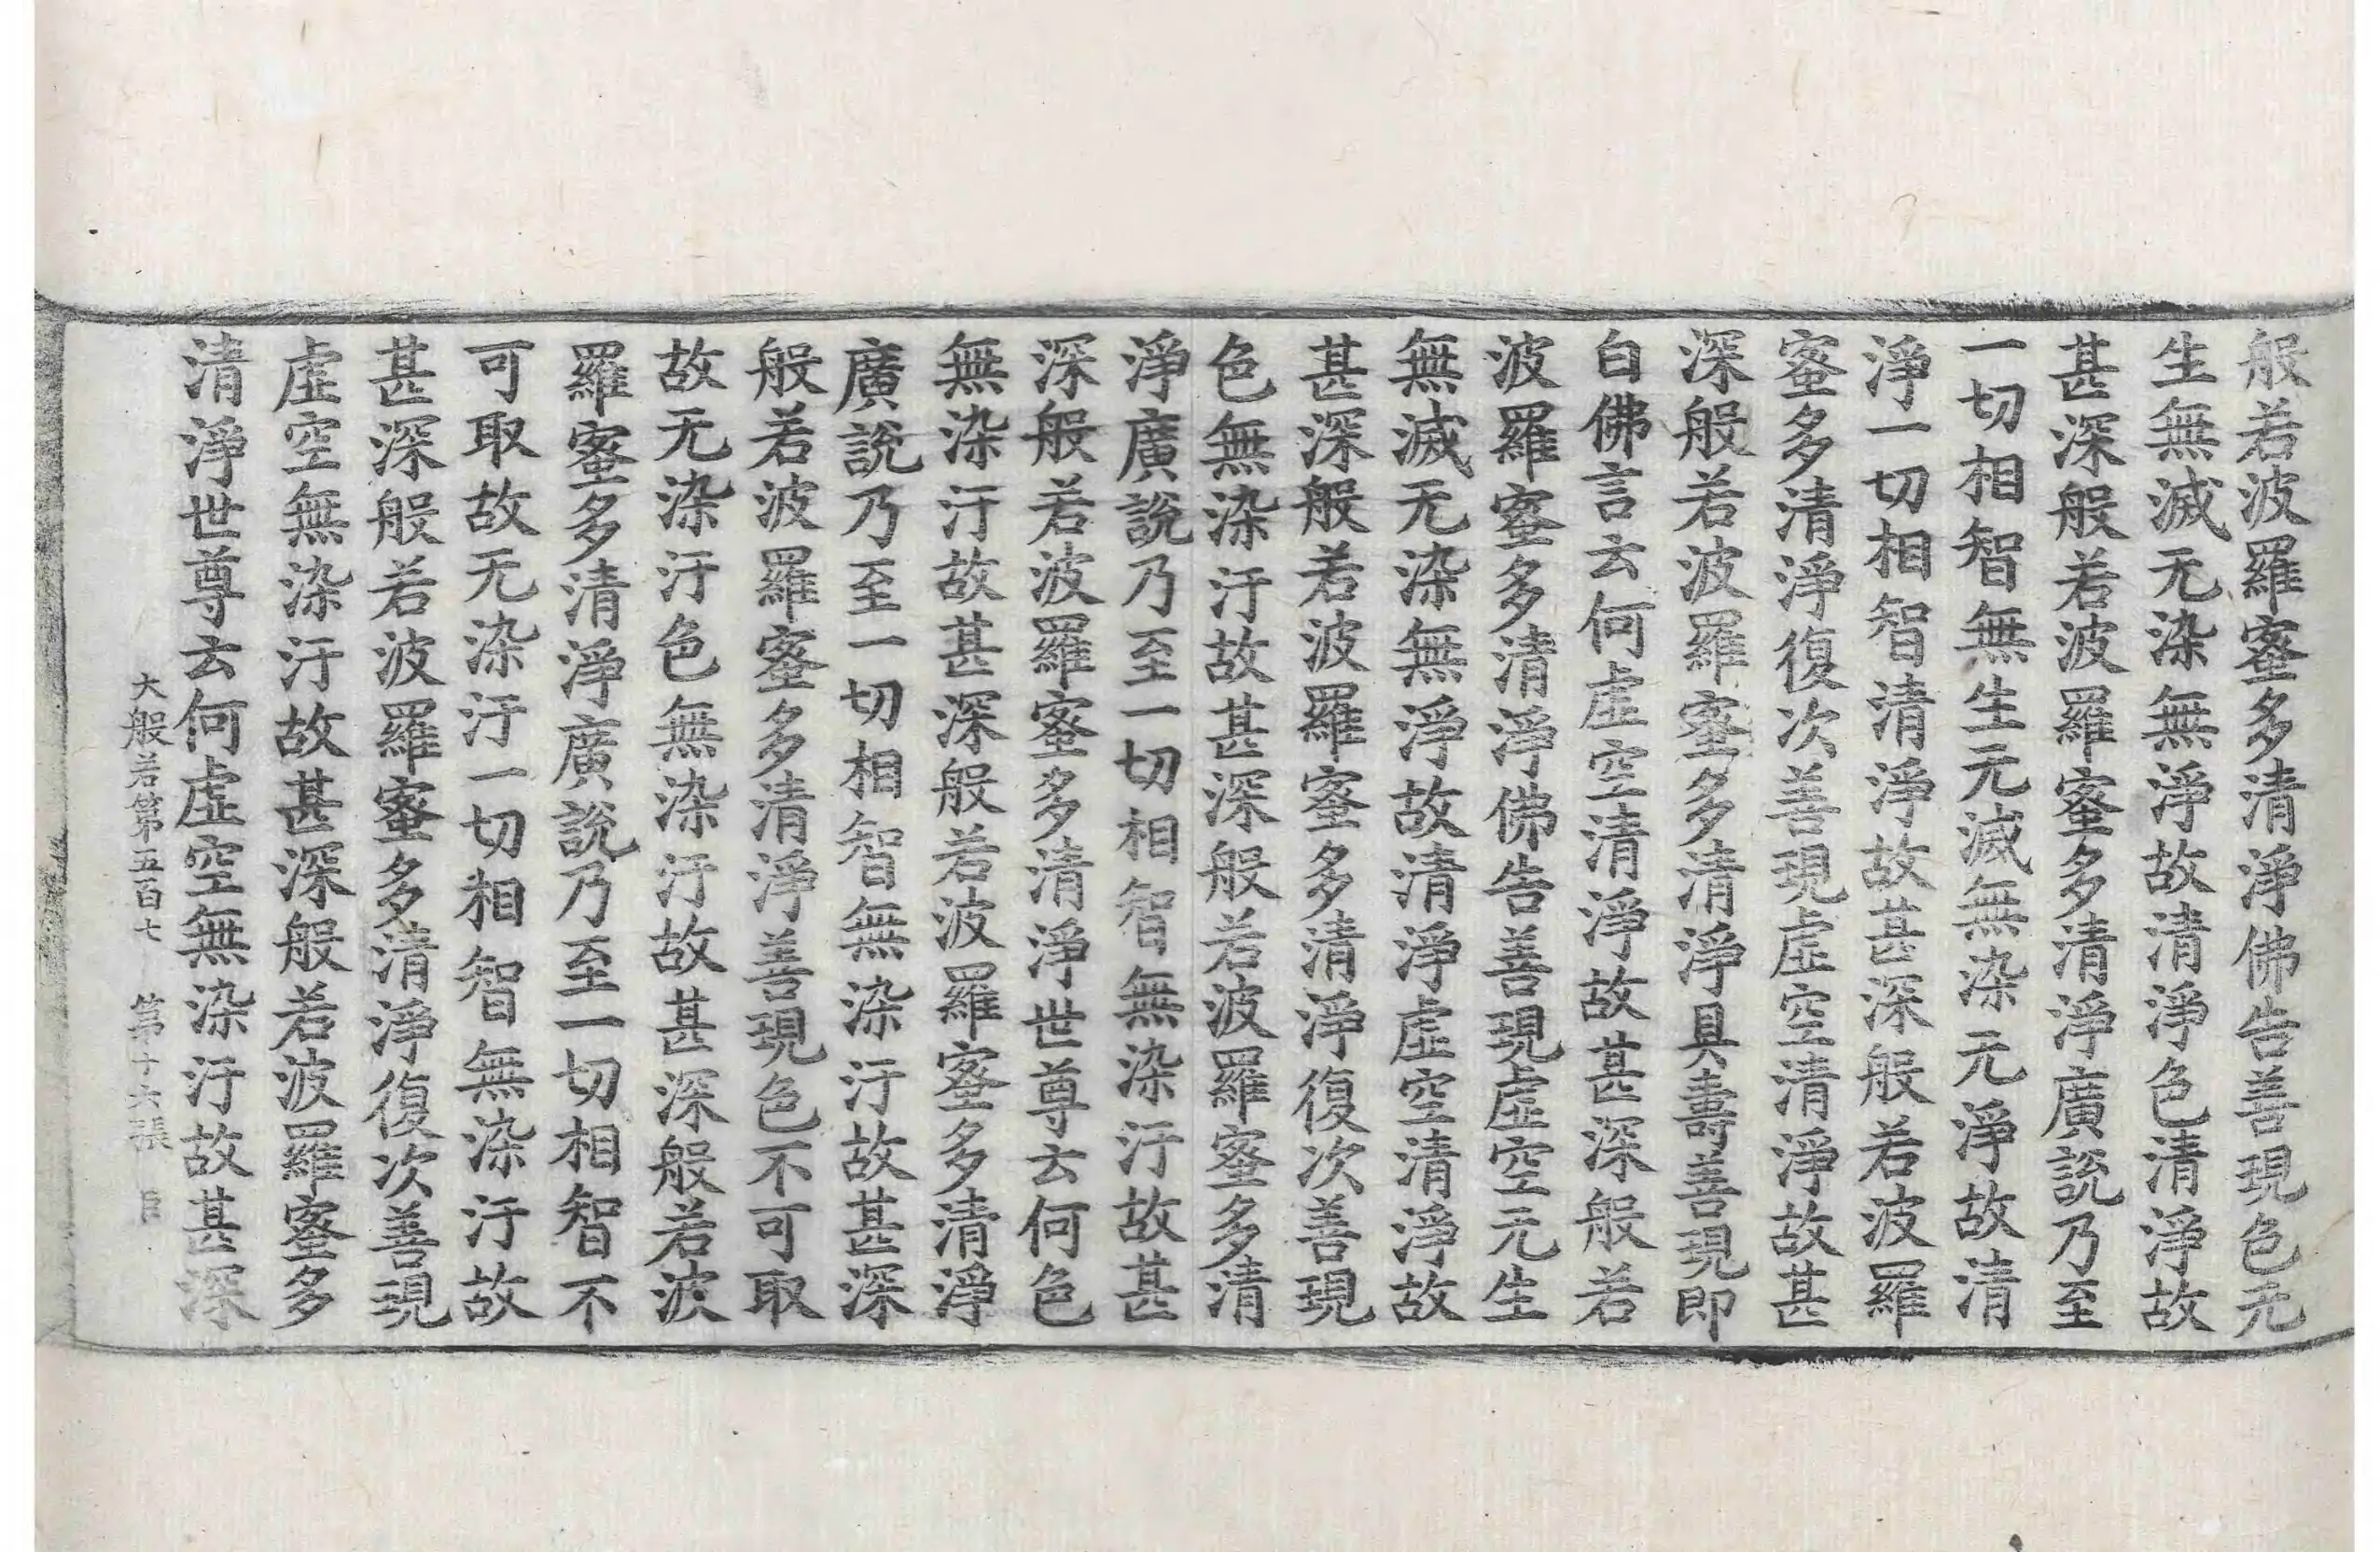 般若波羅蜜多清淨佛告善現色无
生無滅无染無淨故清淨色清淨故
甚深般若波羅蜜多清淨廣說乃至
一切相智無生无滅無染无淨故清
淨一切相智清淨故甚深般若波羅
蜜多清淨復次善現虛空清淨故甚
深般若波羅蜜多清淨具壽善現即
白佛言云何虛空清淨故甚深般若
波羅蜜多清淨佛告善現虛空无生
無滅无染無淨故清淨虛空清淨故
甚深般若波羅蜜多清淨復次善現
色無染汙故甚深般若波羅蜜多清
淨廣說乃至一切相智無染汙故甚
深般若波羅蜜多清淨世尊云何色
無染汙故甚深般若波羅蜜多清淨
廣說乃至一切相智無染汙故甚深
般若波羅蜜多清淨善現色不可取
故无染汙色無染汙故甚深般若波
羅蜜多清淨廣說乃至一切相智不
可取故无染汙一切相智無染汙故
甚深般若波羅蜜多清淨復次善現
虛空無染汙故甚深般若波羅蜜多
清淨世尊云何虛空無染汙故甚深
大般若第五百七 第十六張